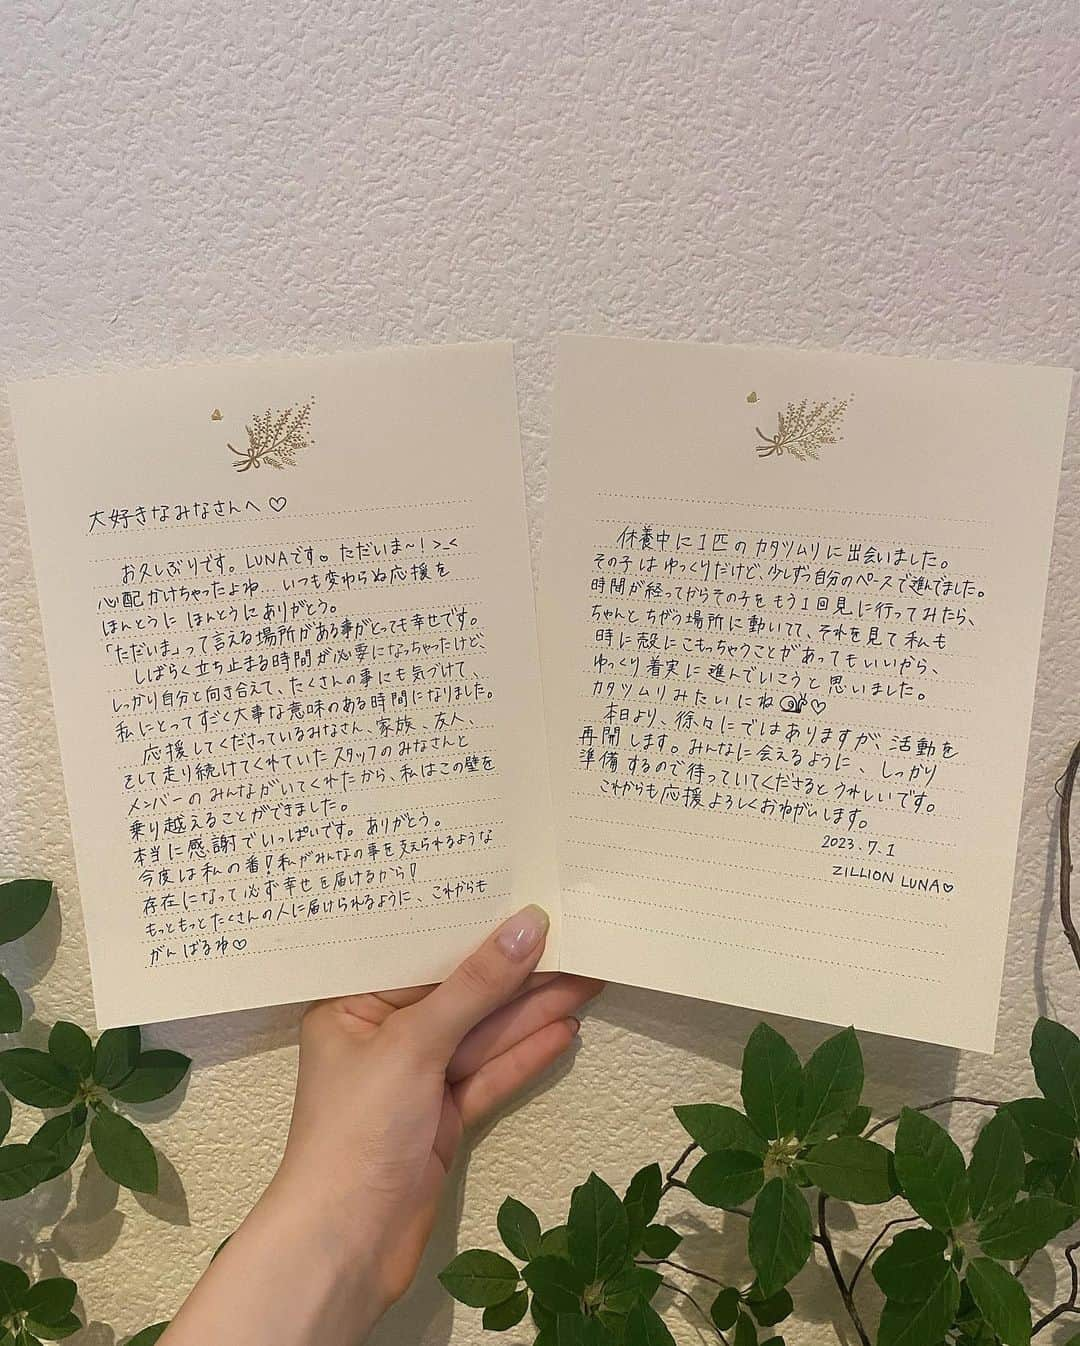 大好きなみなさんへ♡
お久しぶりです。LUNAです。ただいま〜！>_<
心配かけちゃったよね…いつも変わらぬ応援を
ほんとうにほんとうにありがとう。
「ただいま」って言える場所がある事がとっても幸せです。
しばらく立ち止まる時間が必要になっちゃったけど、
しっかり自分と向き合えて、たくさんの事にも気づけて、
私にとってすごく大事な意味のある時間になりました。
応援してくださっているみなさん、家族、友人、
そして走り続けてくれていたスタッフのみなさんと
メンバーのみんながいてくれたから、私はこの壁を
乗り越えることができました。
本当に感謝でいっぱいです。ありがとう。
今度は私の番！私がみんなの事を支えられるような
存在になって必ず幸せを届けるから！
もっともっとたくさんの人に届けられるように、これからも
がんばるね♡
休養中に1匹のカタツムリに出会いました。
その子はゆっくりだけど、少しずつ自分のペースで進んでました。
時間が経ってからその子をもう1回見に行ってみたら、
ちゃんとちがう場所に動いてて、それを見て私も
時に殻にこもっちゃうことがあってもいいから、
ゆっくり着実に進んでいこうと思いました。
カタツムリみたいにね🐌♡
本日より、徐々にではありますが、活動を
再開します。みんなに会えるように、しっかり
準備するので待っていてくださるとうれしいです。
これからも応援よろしくおねがいします。
2023.7.1
ZILLION LUNA♡